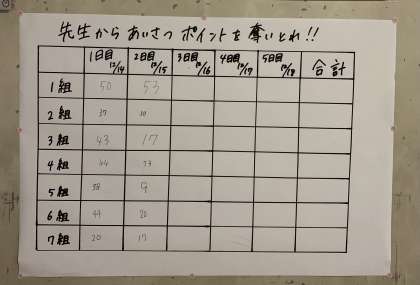 先生から あいさつ ポイントを 奪いとれ!!
1日目 12/14 2日目 12/15 3日目 12/16 4日目 12/17 5日目 12/18 合計
1組 50 53
2組 37
3組 43 17
4組 44
5組
6組 20
7組 20 17